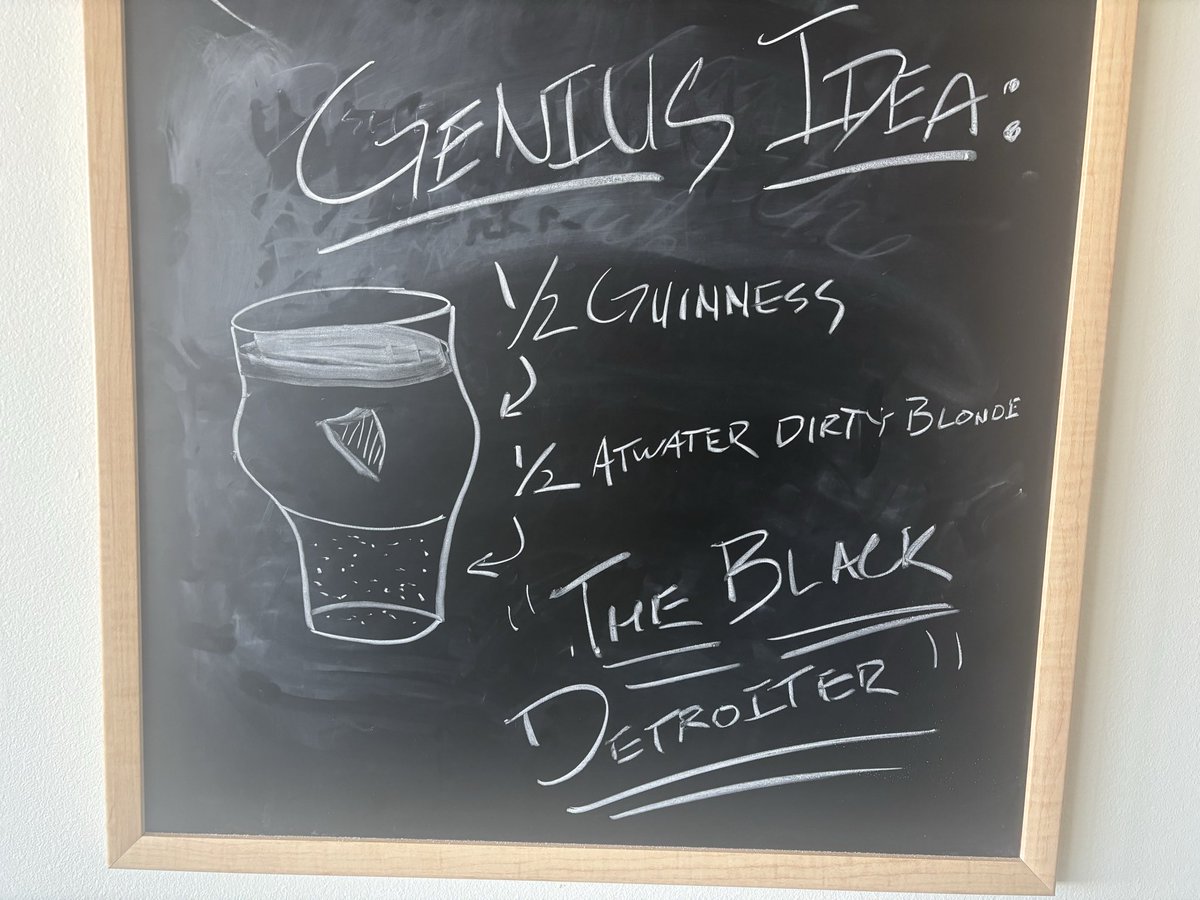 GENIUS IDEA:
1/2 GUINNESS
1/2 ATWATER DIRTY BLONDE
"THE BLACK
DETROITER"